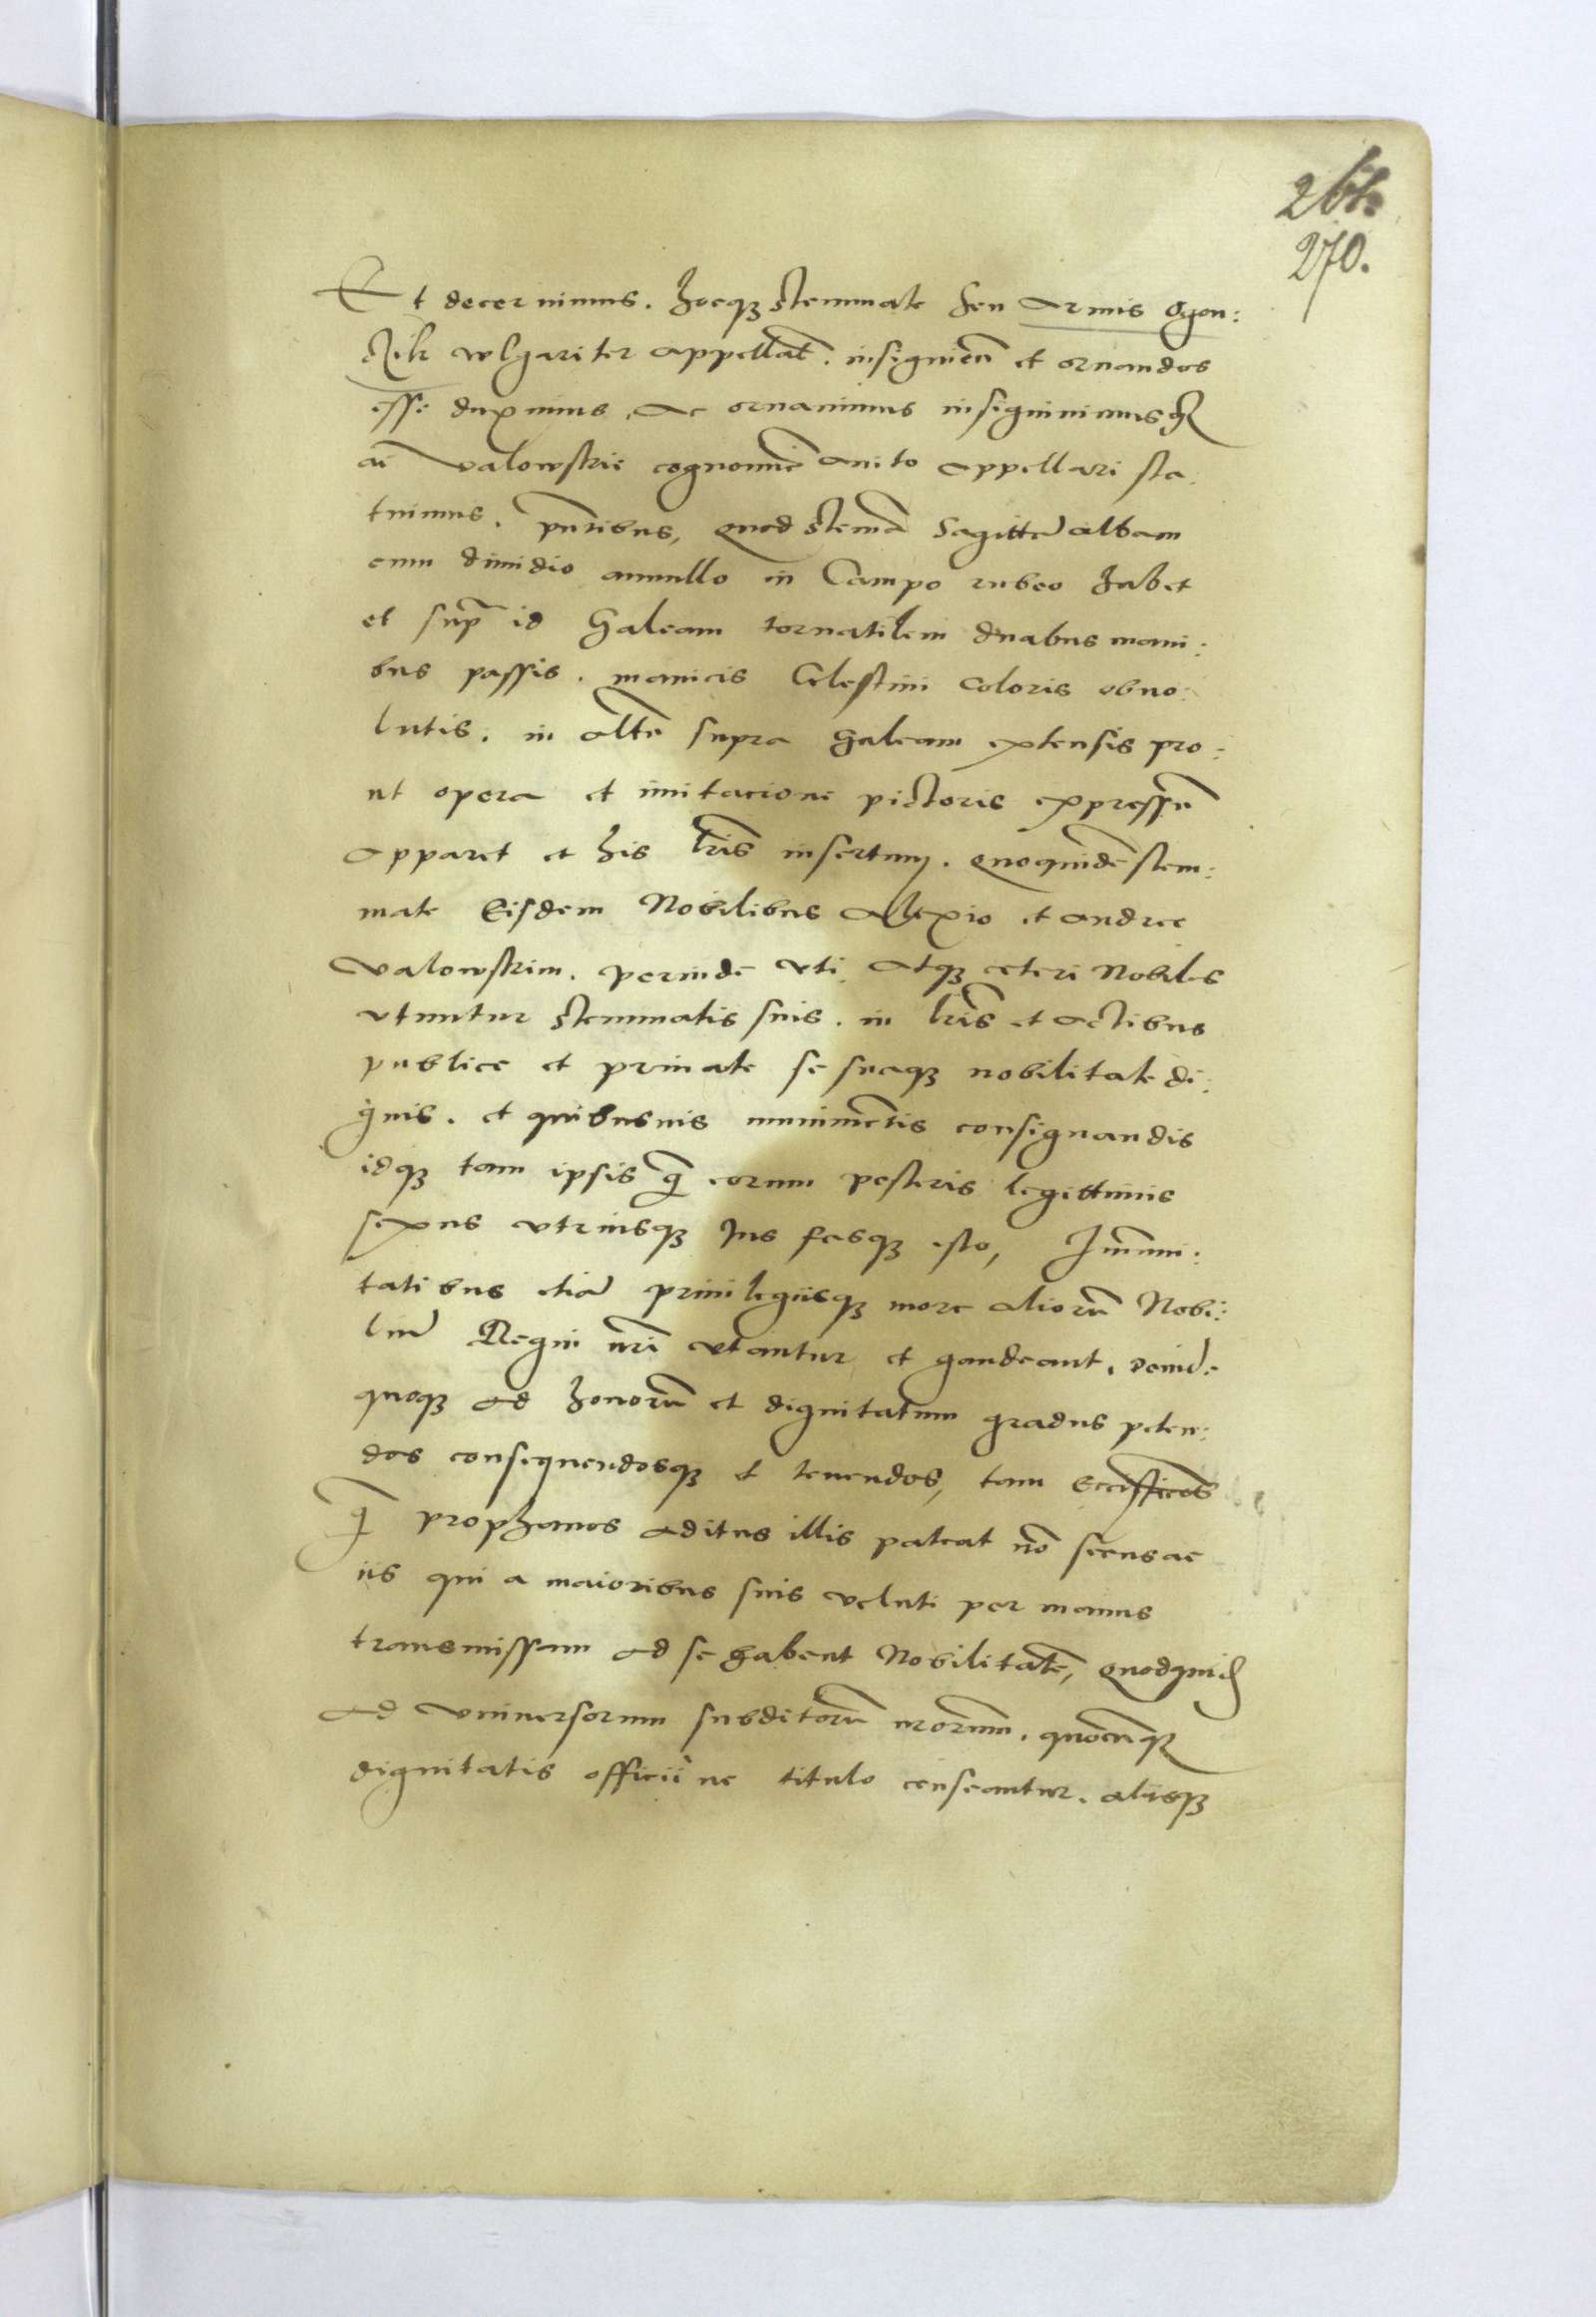 268
270.
Et decernimus. hocq3 stemmate seu Armis Ogon:
Czik wlgariter appellat̃. insigniẽn et ornandos
esse duximus, Ac ornauimus insigniuimusq3
aĩ Valowskii cognomĩe Auito Appellari sta:
tuimus. pñtibus, Quod stemã Sagittã albam
cum dimidio annullo in Campo rubeo habet
et sup̃ id Galeam tornatilem duabus mani:
bus passis. manicis Celestini Coloris obuo:
lutis. in Altũ supra Galeam extensis pro:
ut opera et imitacione pictoris expressũ
Apparet et his lrĩs insertum. Quoquidẽ stem:
mate Eisdem Nobilibus Alexio et Andree
Valowskim. perinde vti Atq3 ceteri Nobiles
vtuntur stemmatis suis. in lrĩs et Actibus
publice et priuate se suaq3 nobilitate di:
gnis. et quibusuis munimẽtis consignandis
idq3 tam ipsis q̃ eorum posteris legittimis
sexus vtriusq3 Ius fasq3 esto, Immuni:
tatibus etiã priuilegiisq3 more Aliorũ Nobi:
liũ Regni nrĩ vtantur et gaudeant.
quoq3 Ad honorũ et dignitatum gradus peten:
dos consequendosq3 et tenendos, tam Ecclĩsticos
q̃ prophanos Aditus illis pateat nõ secus ac
iis qui a maioribus suis veluti per manus
transmissam Ad se habent Nobilitatẽ, Quodquid
Ad vniuersorum subditorũ nrorum. quocũq3
dignitatis officii ue titulo censeantur. aliisq3